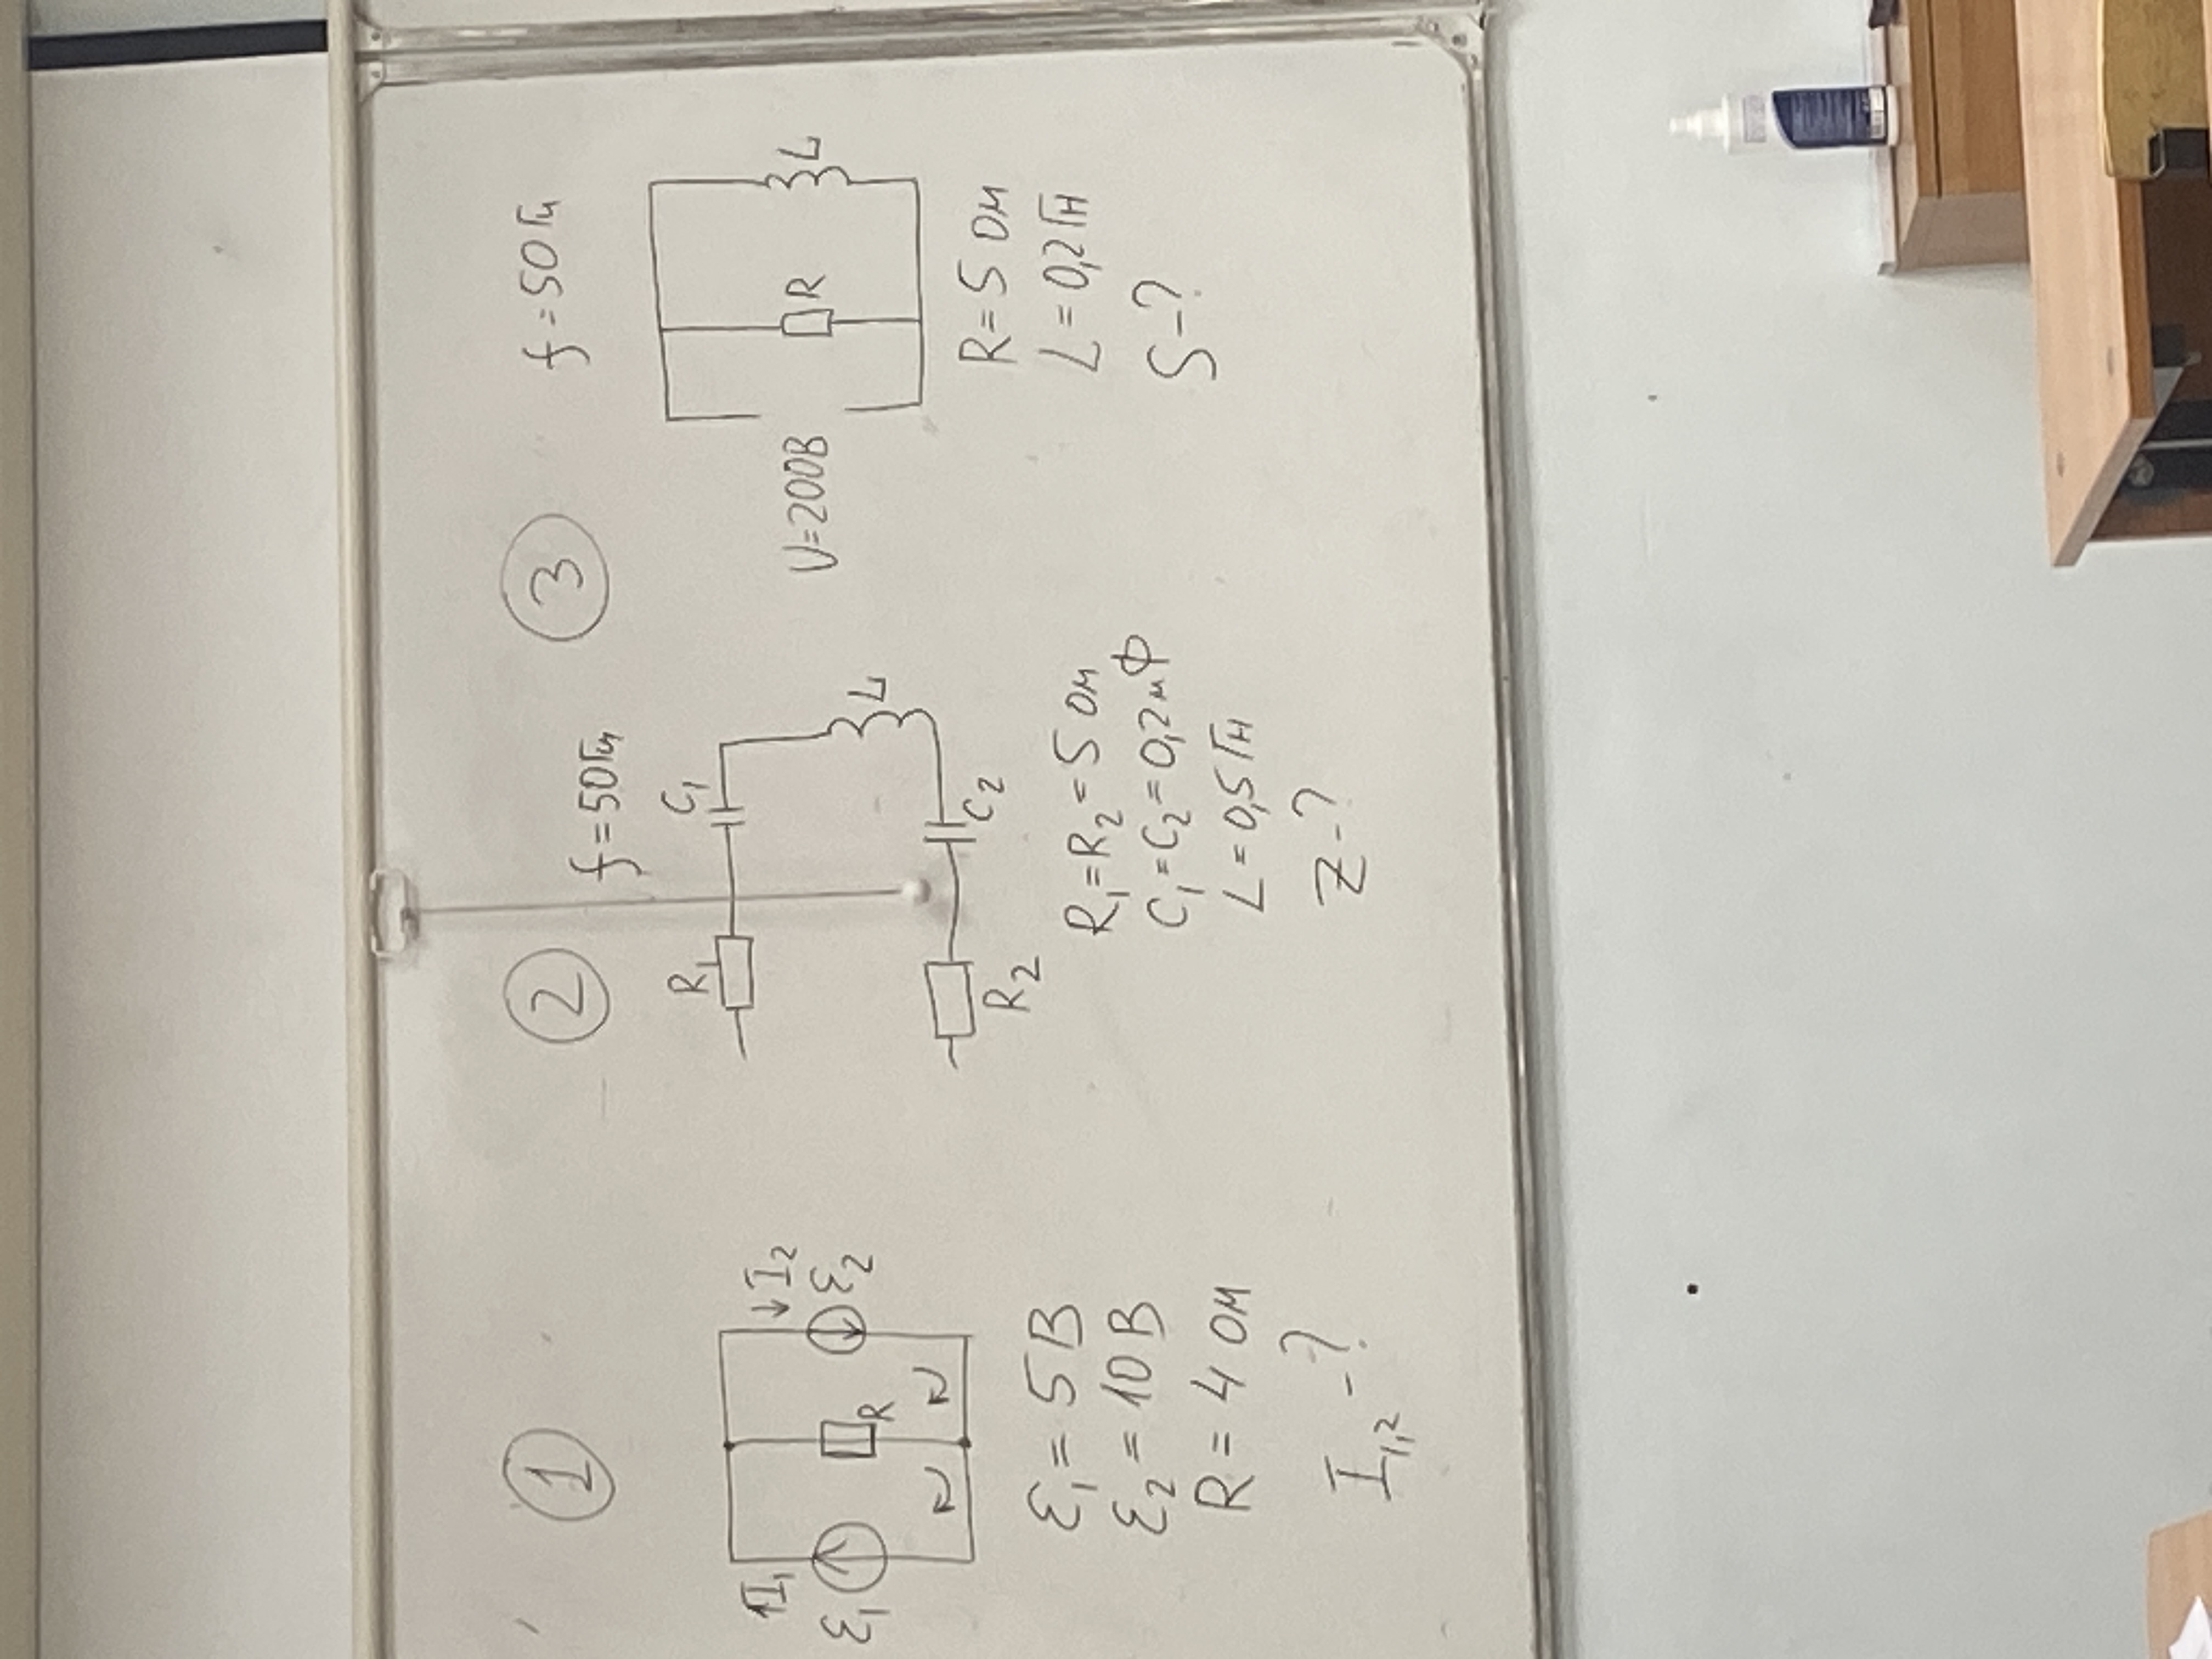 1
↑I₁
ε₁
R
↓I₂
ε₂
ε₁ = 5 В
ε₂ = 10 В
R = 4 Ом
I₁,₂ - ?
2
f = 50 Гц
R₁
C₁
L
R₂
C₂
R₁ = R₂ = 5 Ом
C₁ = C₂ = 0,2 мФ
L = 0,5 Гн
Z - ?
3
f = 50 Гц
U = 200 В
R
L
R = 5 Ом
L = 0,2 Гн
S - ?